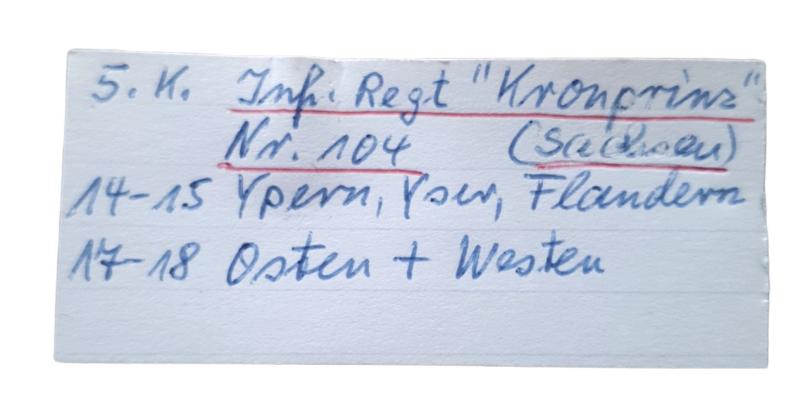 5. K. Inf. Regt "Kronprinz"
Nr. 104 (Sachsen)
14-15 Ypern, Yser, Flandern
17-18 Osten + Westen